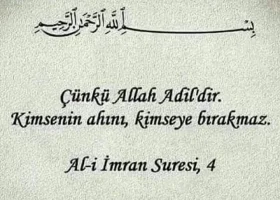 بِسْمِ اللهِ الرَّحْمٰنِ الرَّحِيمِ
Çünkü Allah Adil'dir.
Kimsenin ahını, kimseye bırakmaz.
Al-i İmran Suresi, 4